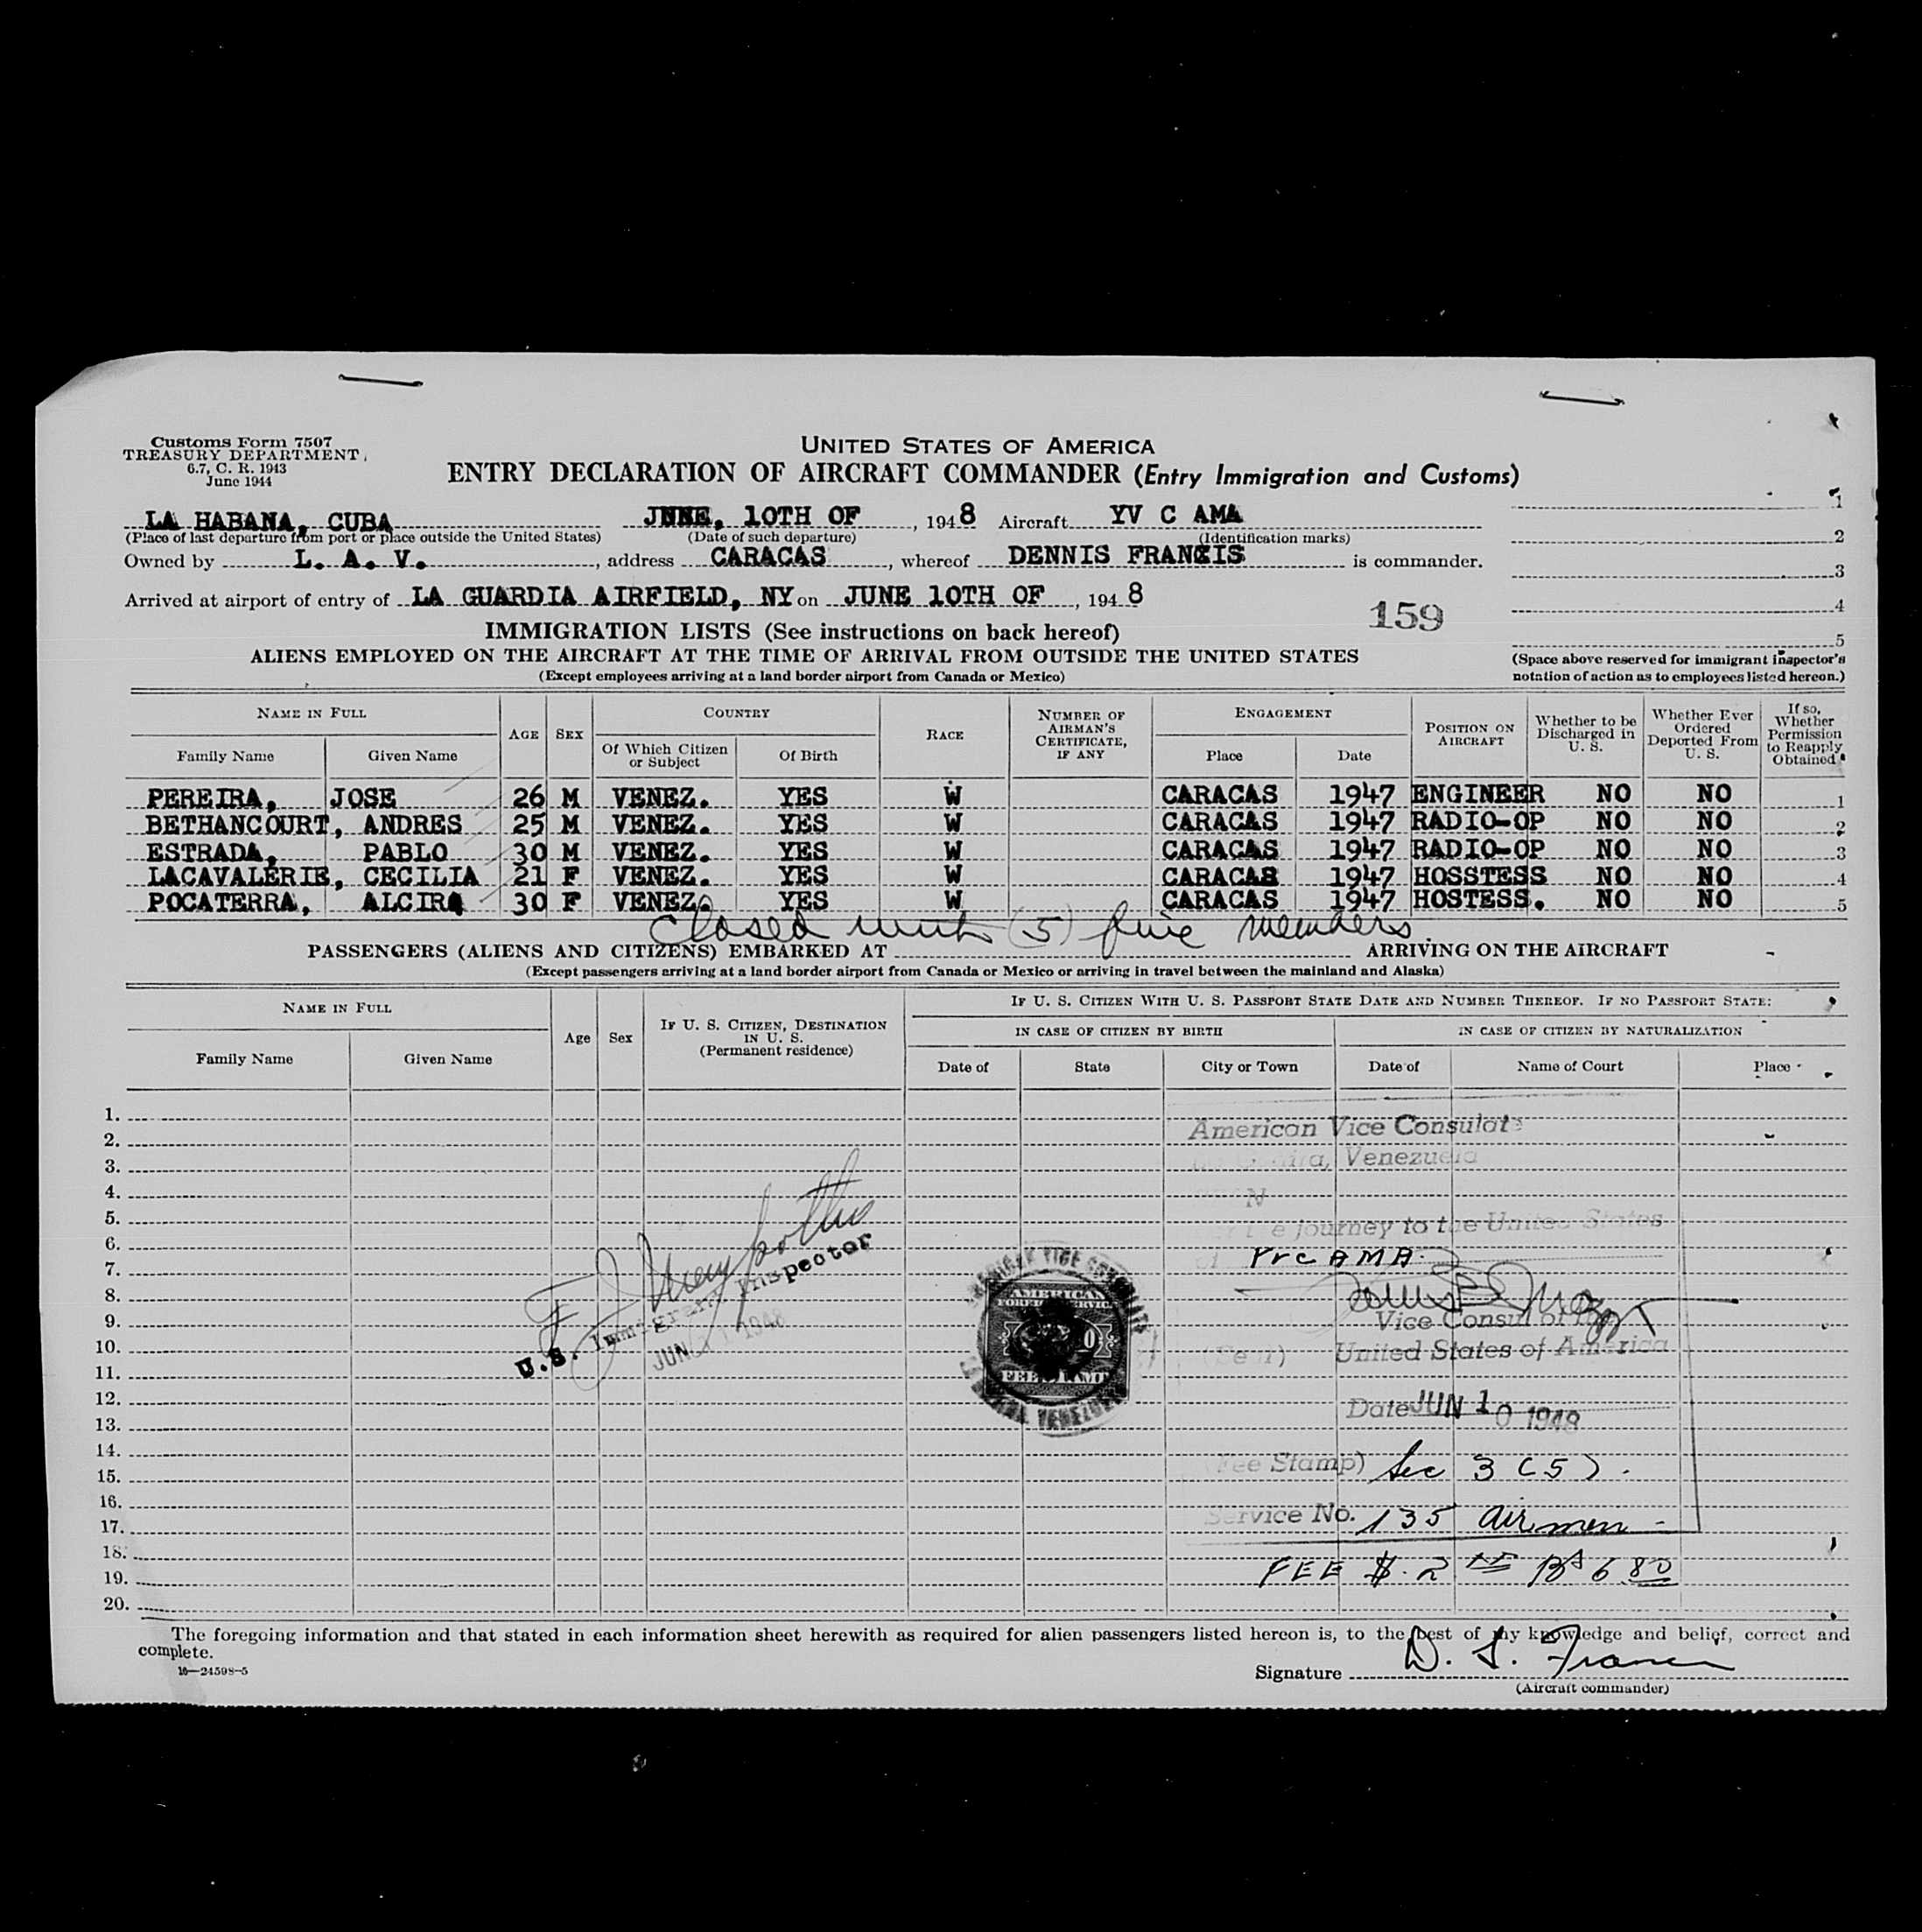 Customs Form 7507
TREASURY DEPARTMENT
6.7, C. R. 1943
June 1944
UNITED STATES OF AMERICA
ENTRY DECLARATION OF AIRCRAFT COMMANDER (Entry Immigration and Customs)
LA HABANA, CUBA JUNE, 10TH OF , 1948 Aircraft YV C AMA
(Place of last departure from port or place outside the United States) (Date of such departure) (Identification marks)
Owned by L. A. V. , address CARACAS , whereof DENNIS FRANCIS is commander.
Arrived at airport of entry of LA GUARDIA AIRFIELD, NY on JUNE 10TH OF , 1948
1
2
3
4
5
159
IMMIGRATION LISTS (See instructions on back hereof)
ALIENS EMPLOYED ON THE AIRCRAFT AT THE TIME OF ARRIVAL FROM OUTSIDE THE UNITED STATES
(Except employees arriving at a land border airport from Canada or Mexico)
(Space above reserved for immigrant inspector's
notation of action as to employees listed hereon.)
NAME IN FULL
Family Name Given Name
AGE
SEX
COUNTRY
Of Which Citizen or Subject Of Birth
RACE
NUMBER OF AIRMAN'S CERTIFICATE, IF ANY
ENGAGEMENT
Place Date
POSITION ON AIRCRAFT
Whether to be Discharged in U. S.
Whether Ever Ordered Deported From U. S.
If so, Whether Permission to Reapply Obtained
PEREIRA, JOSE 26 M VENEZ. YES W CARACAS 1947 ENGINEER NO NO 1
BETHANCOURT, ANDRES 25 M VENEZ. YES W CARACAS 1947 RADIO-OP NO NO 2
ESTRADA, PABLO 30 M VENEZ. YES W CARACAS 1947 RADIO-OP NO NO 3
LACAVALERIE, CECILIA 21 F VENEZ. YES W CARACAS 1947 HOSSTESS NO NO 4
POCATERRA, ALCIRA 30 F VENEZ. YES W CARACAS 1947 HOSTESS. NO NO 5
Closed with (5) five members
PASSENGERS (ALIENS AND CITIZENS) EMBARKED AT ARRIVING ON THE AIRCRAFT
(Except passengers arriving at a land border airport from Canada or Mexico or arriving in travel between the mainland and Alaska)
NAME IN FULL
Family Name Given Name
Age
Sex
IF U. S. CITIZEN, DESTINATION IN U. S.
(Permanent residence)
IF U. S. CITIZEN WITH U. S. PASSPORT STATE DATE AND NUMBER THEREOF. IF NO PASSPORT STATE:
IN CASE OF CITIZEN BY BIRTH IN CASE OF CITIZEN BY NATURALIZATION
Date of State City or Town Date of Name of Court Place
1.
2.
3.
4.
5.
6.
7.
8.
9.
10.
11.
12.
13.
14.
15.
16.
17.
18.
19.
20.
American Vice Consulate
Venezuela
journey to the United States
YVC AMA
Vice Consul of the
United States of America
Date JUN 10 1948
(Fee Stamp) Sec 3 (5).
Service No. 135 Airmen -
FEE $ 2 Bs 6.80
U.S. Immigrant Inspector
JUN 1948
AMERICAN VICE CONSULATE
VENEZUELA
AMERICAN
FOREIGN SERVICE
FEE STAMP
The foregoing information and that stated in each information sheet herewith as required for alien passengers listed hereon is, to the best of my knowledge and belief, correct and
complete.
16—24598-5
Signature D. S. Francis
(Aircraft commander)